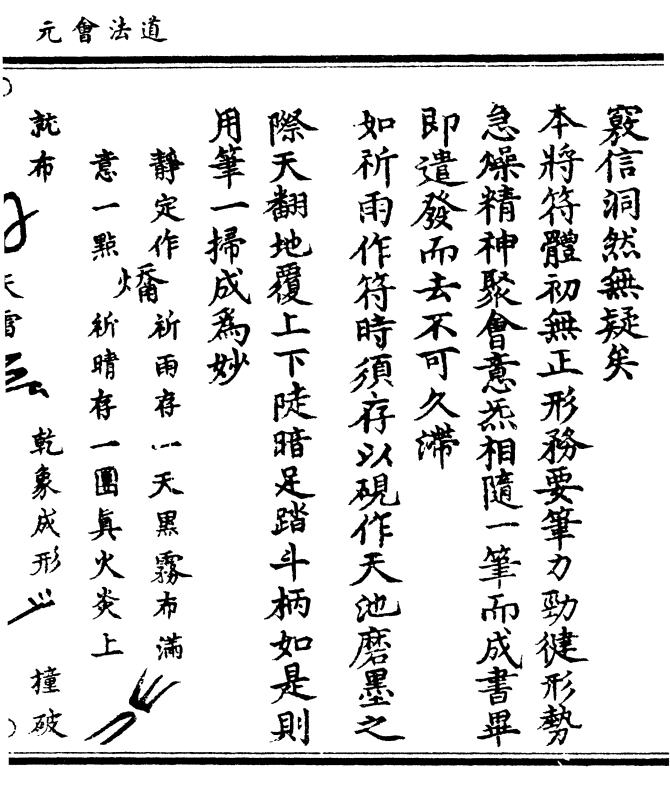 道法會元
竅信洞然無疑矣
本將符體初無正形務要筆力勁健形勢
急燥精神聚會意炁相隨一筆而成書畢
即遣發而去不可久滯
如祈雨作符時須存以硯作天池磨墨之
際天翻地覆上下陡暗足踏斗柄如是則
用筆一掃成爲妙
靜定作 祈雨存一天黑霧布滿
意一點 祈晴存一團真火炎上
就布 天雷 乾象成形 撞破